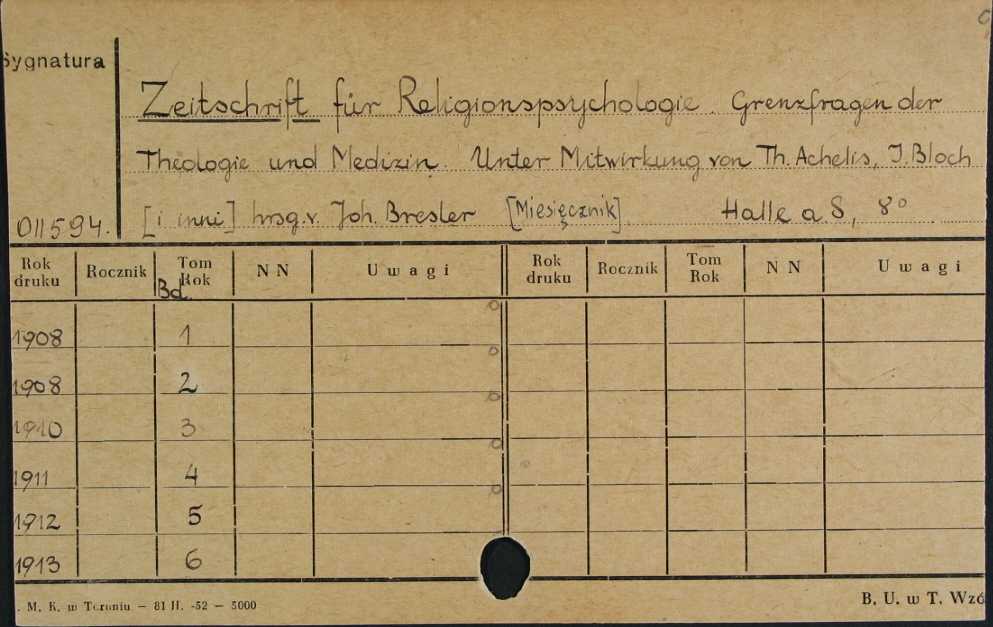 Sygnatura
Zeitschrift für Religionspsychologie. Grenzfragen der
Theologie und Medizin. Unter Mitwirkung von Th. Achelis, J. Bloch
011594. [i inni] hrsg. v. Joh. Bresler [Miesięcznik]. Halle a. S, 8°
Rok druku Rocznik Tom Rok NN Uwagi Rok druku Rocznik Tom Rok NN Uwagi
Bd.
1908 1
1908 2
1910 3
1911 4
1912 5
1913 6
. M. K. w Toruniu — 81 H. -52 — 5000 B. U. w T. Wzó